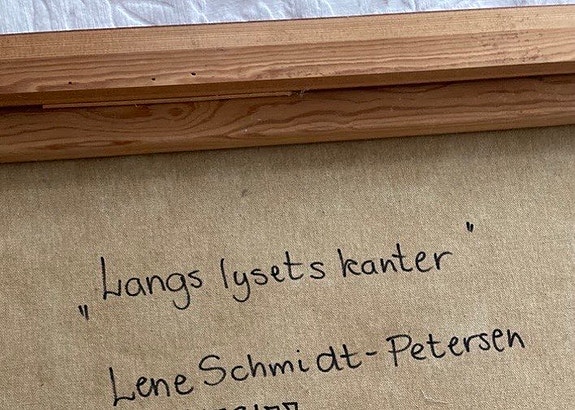 „Langs lysets kanter"
Lene Schmidt-Petersen